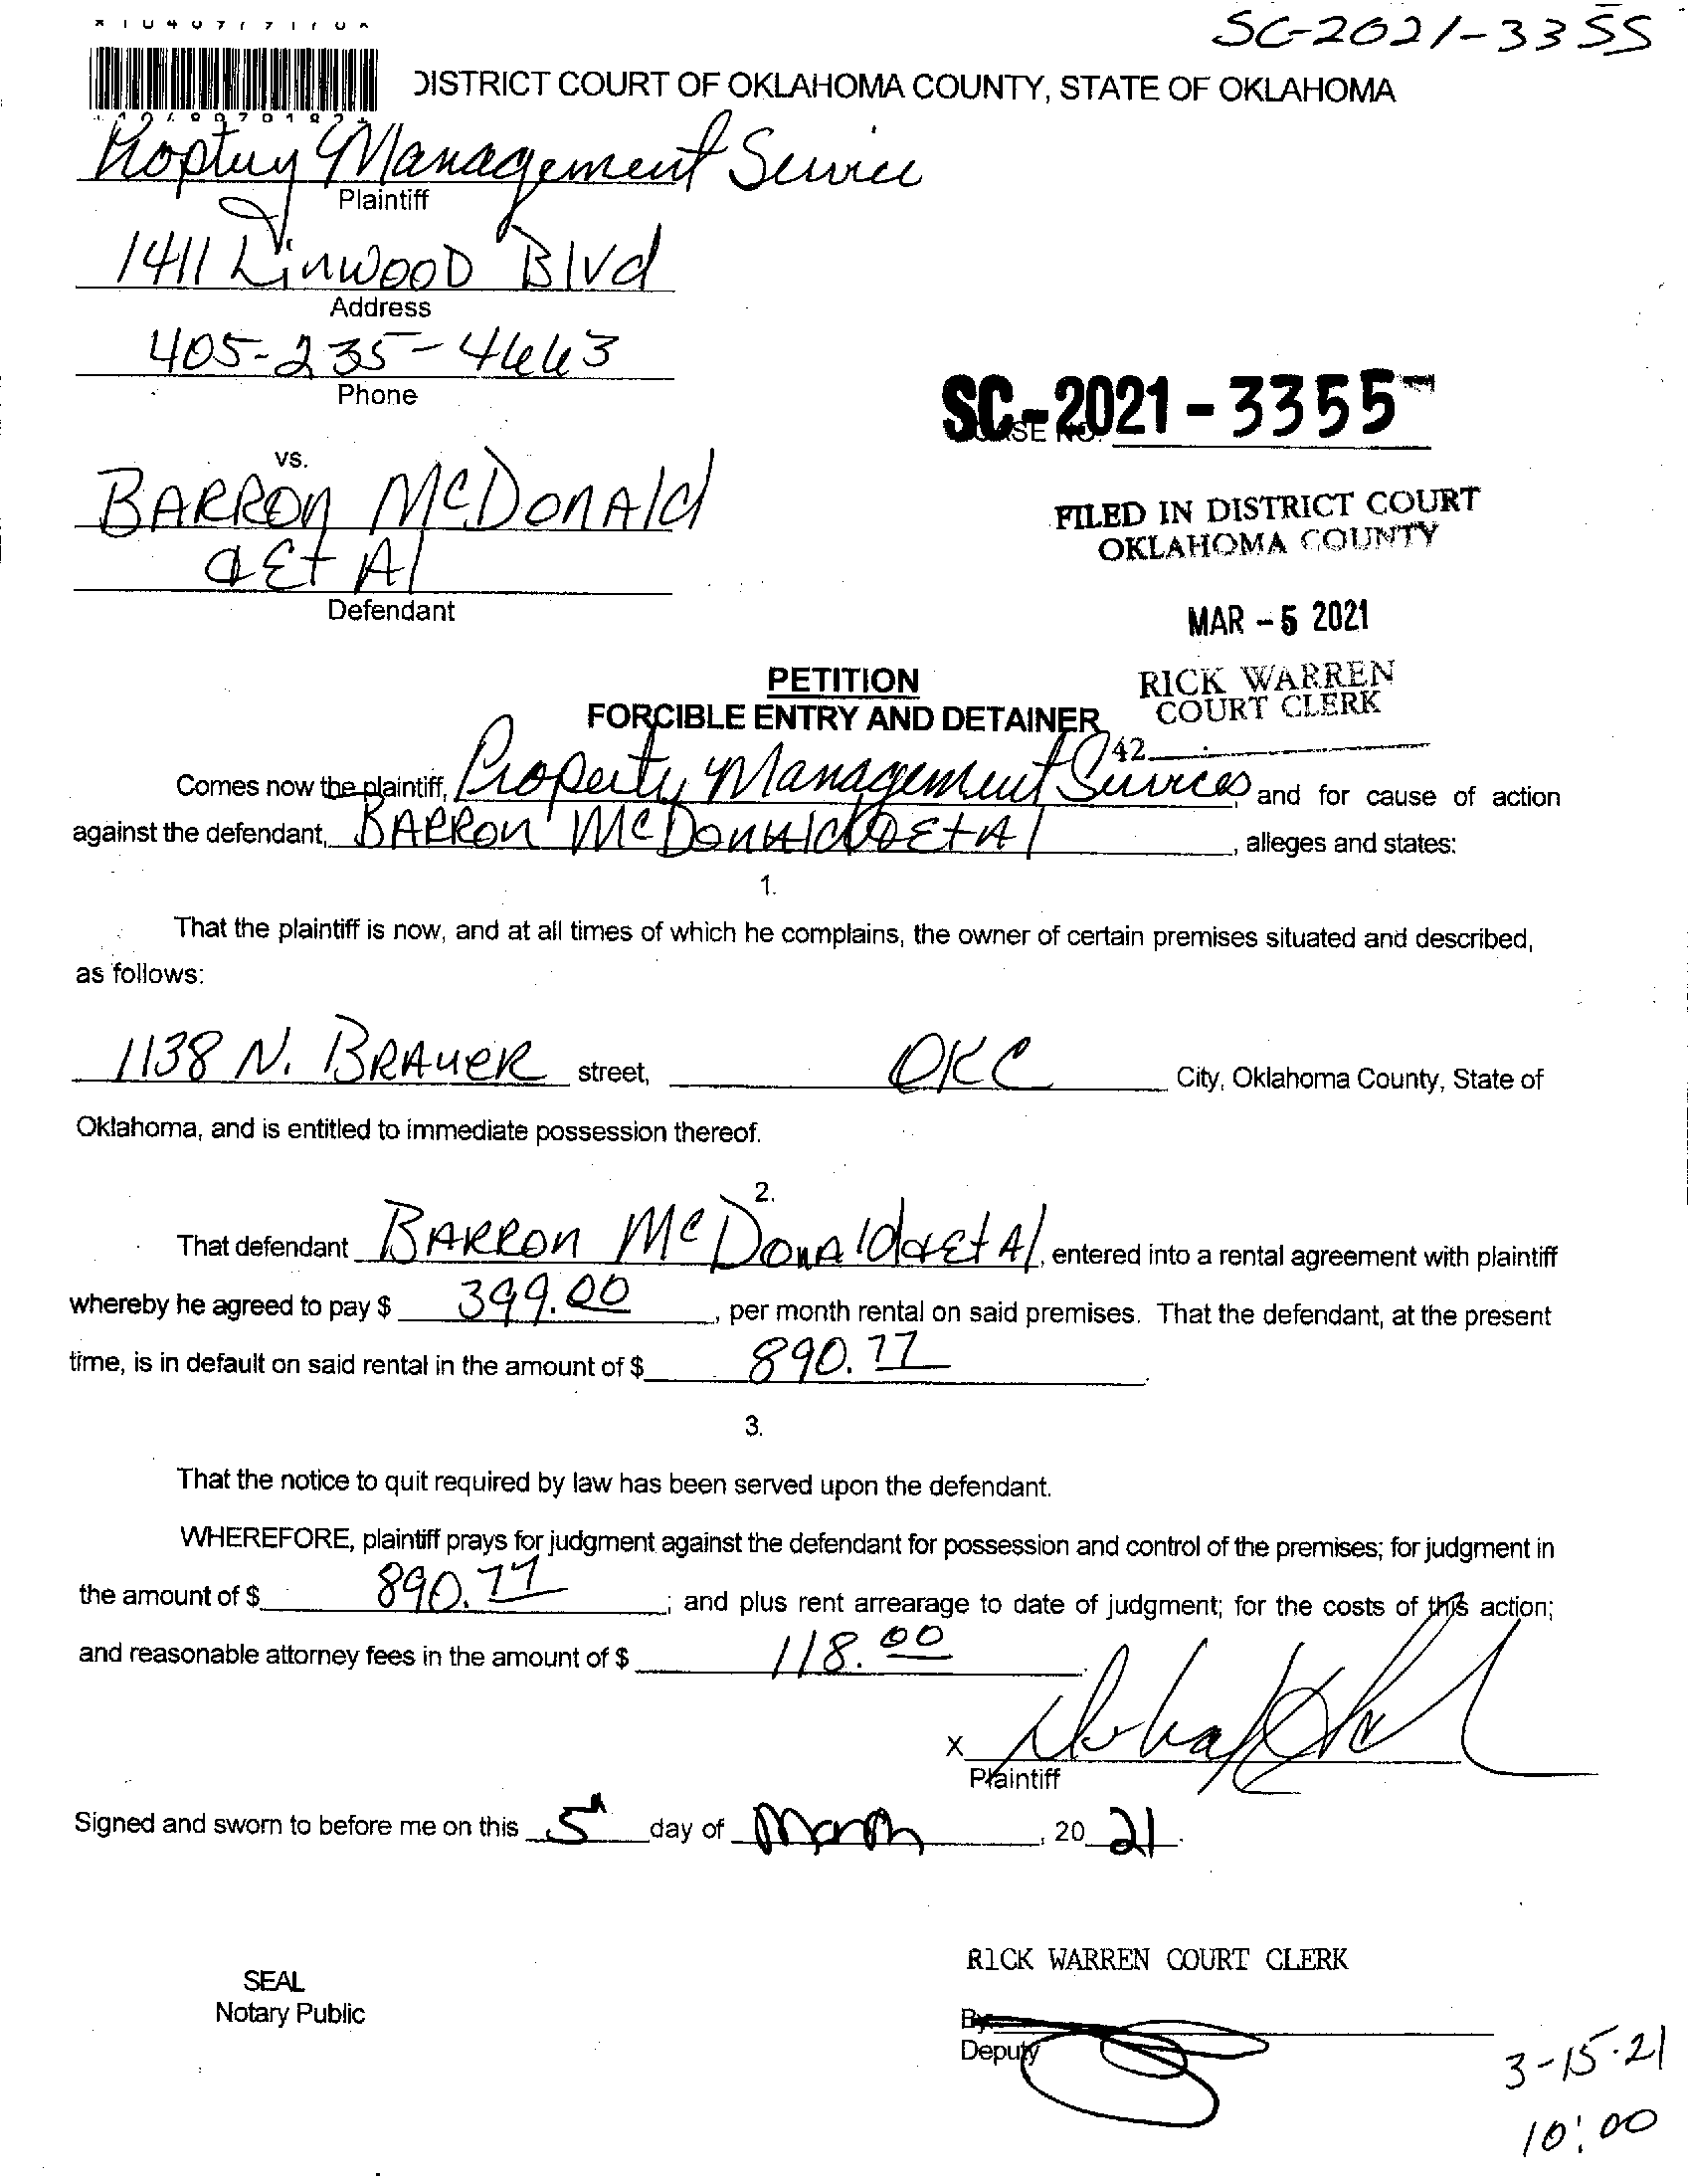 SC-2021-3355
DISTRICT COURT OF OKLAHOMA COUNTY, STATE OF OKLAHOMA
Property Management Service
Plaintiff
1411 Linwood Blvd
Address
405-235-4663
Phone
SC-2021-3355
CASE NO.
vs.
BARRON McDonald
& Et Al
Defendant
FILED IN DISTRICT COURT
OKLAHOMA COUNTY
MAR - 5 2021
RICK WARREN
COURT CLERK
42
PETITION
FORCIBLE ENTRY AND DETAINER
Comes now the plaintiff, Property Management Services, and for cause of action
against the defendant, BARRON McDonald & Et Al, alleges and states:
1.
That the plaintiff is now, and at all times of which he complains, the owner of certain premises situated and described,
as follows:
1138 N. BRAUER street, OKC City, Oklahoma County, State of
Oklahoma, and is entitled to immediate possession thereof.
2.
That defendant BARRON McDonald & Et Al, entered into a rental agreement with plaintiff
whereby he agreed to pay $ 399.00, per month rental on said premises. That the defendant, at the present
time, is in default on said rental in the amount of $ 890.77.
3.
That the notice to quit required by law has been served upon the defendant.
WHEREFORE, plaintiff prays for judgment against the defendant for possession and control of the premises; for judgment in
the amount of $ 890.77; and plus rent arrearage to date of judgment; for the costs of this action;
and reasonable attorney fees in the amount of $ 118.00.
X
Plaintiff
Signed and sworn to before me on this 5th day of March, 20 21.
RICK WARREN COURT CLERK
SEAL
Notary Public
By:
Deputy
3-15-21
10:00